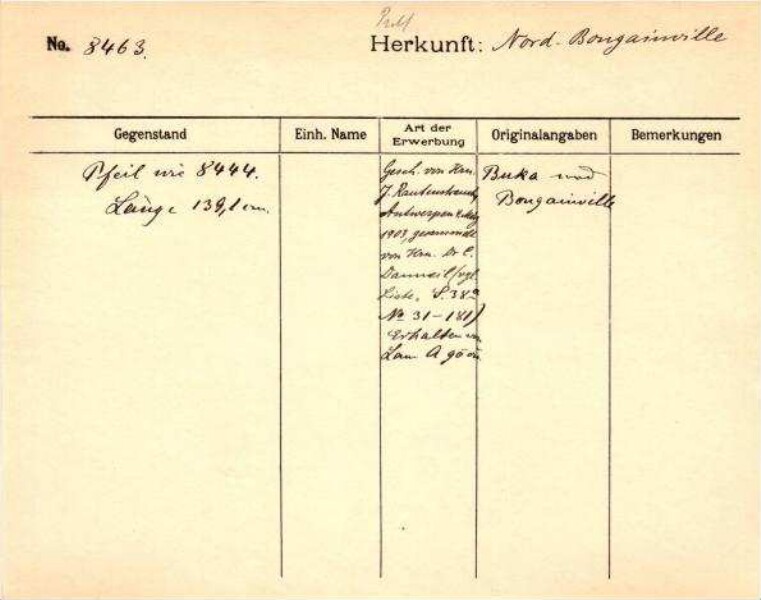 No. 8463.
Herkunft: Nord-Bougainville
Gegenstand
Einh. Name
Art der Erwerbung
Originalangaben
Bemerkungen
Pfeil wie 8444.
Länge 139,1 cm.
Gesch. von Hrn.
J. Rautenstrauch,
Antwerpen
1903, gesammelt
von Hrn. Dr C.
Danneil (vgl.
Liste, S. 38a
No 31-181)
Erhalten von
Lam
Buka und
Bougainville